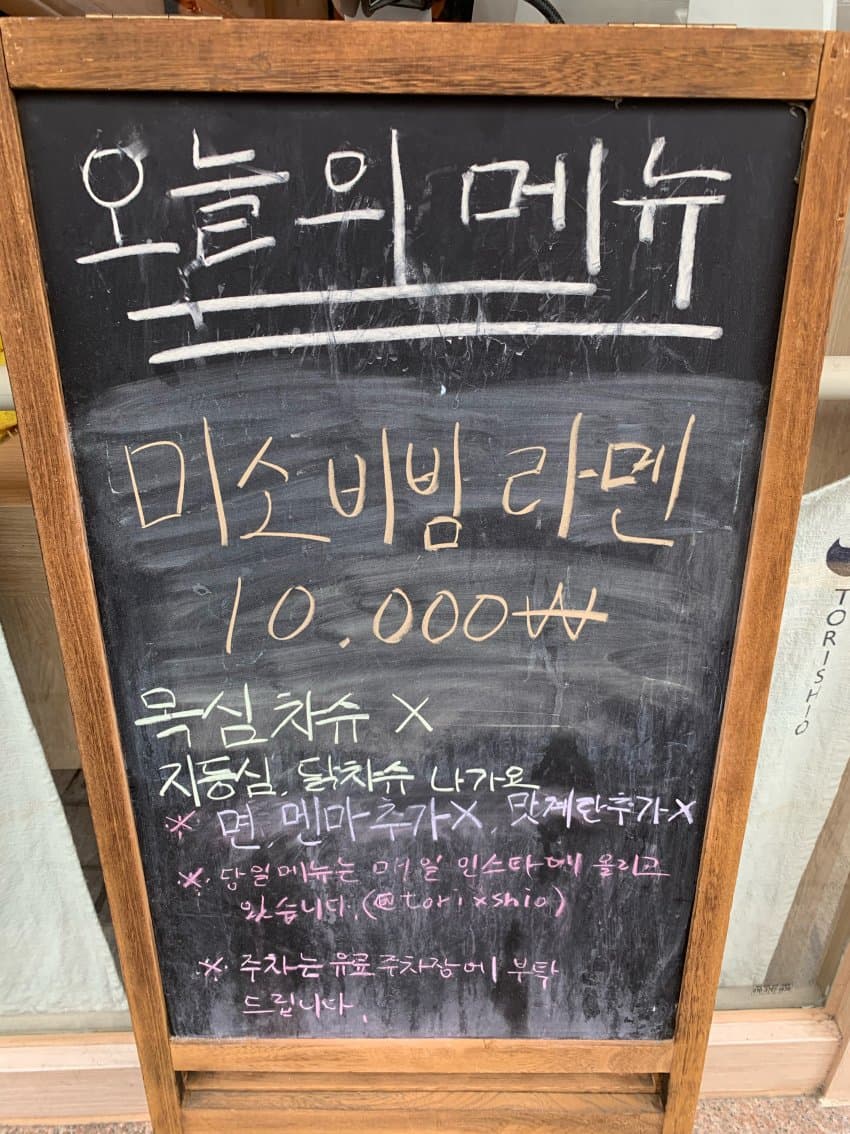 오늘의 메뉴
미소비빔 라멘
10.000₩
목심차슈 X
지동심. 닭차슈 나가요
※ 면, 멘마추가X, 맛계란추가X
※. 당일메뉴는 매일 인스타에 올리고
있습니다.(@torixshio)
※. 주차는 유료주차장에 부탁
드립니다.
TORISHIO